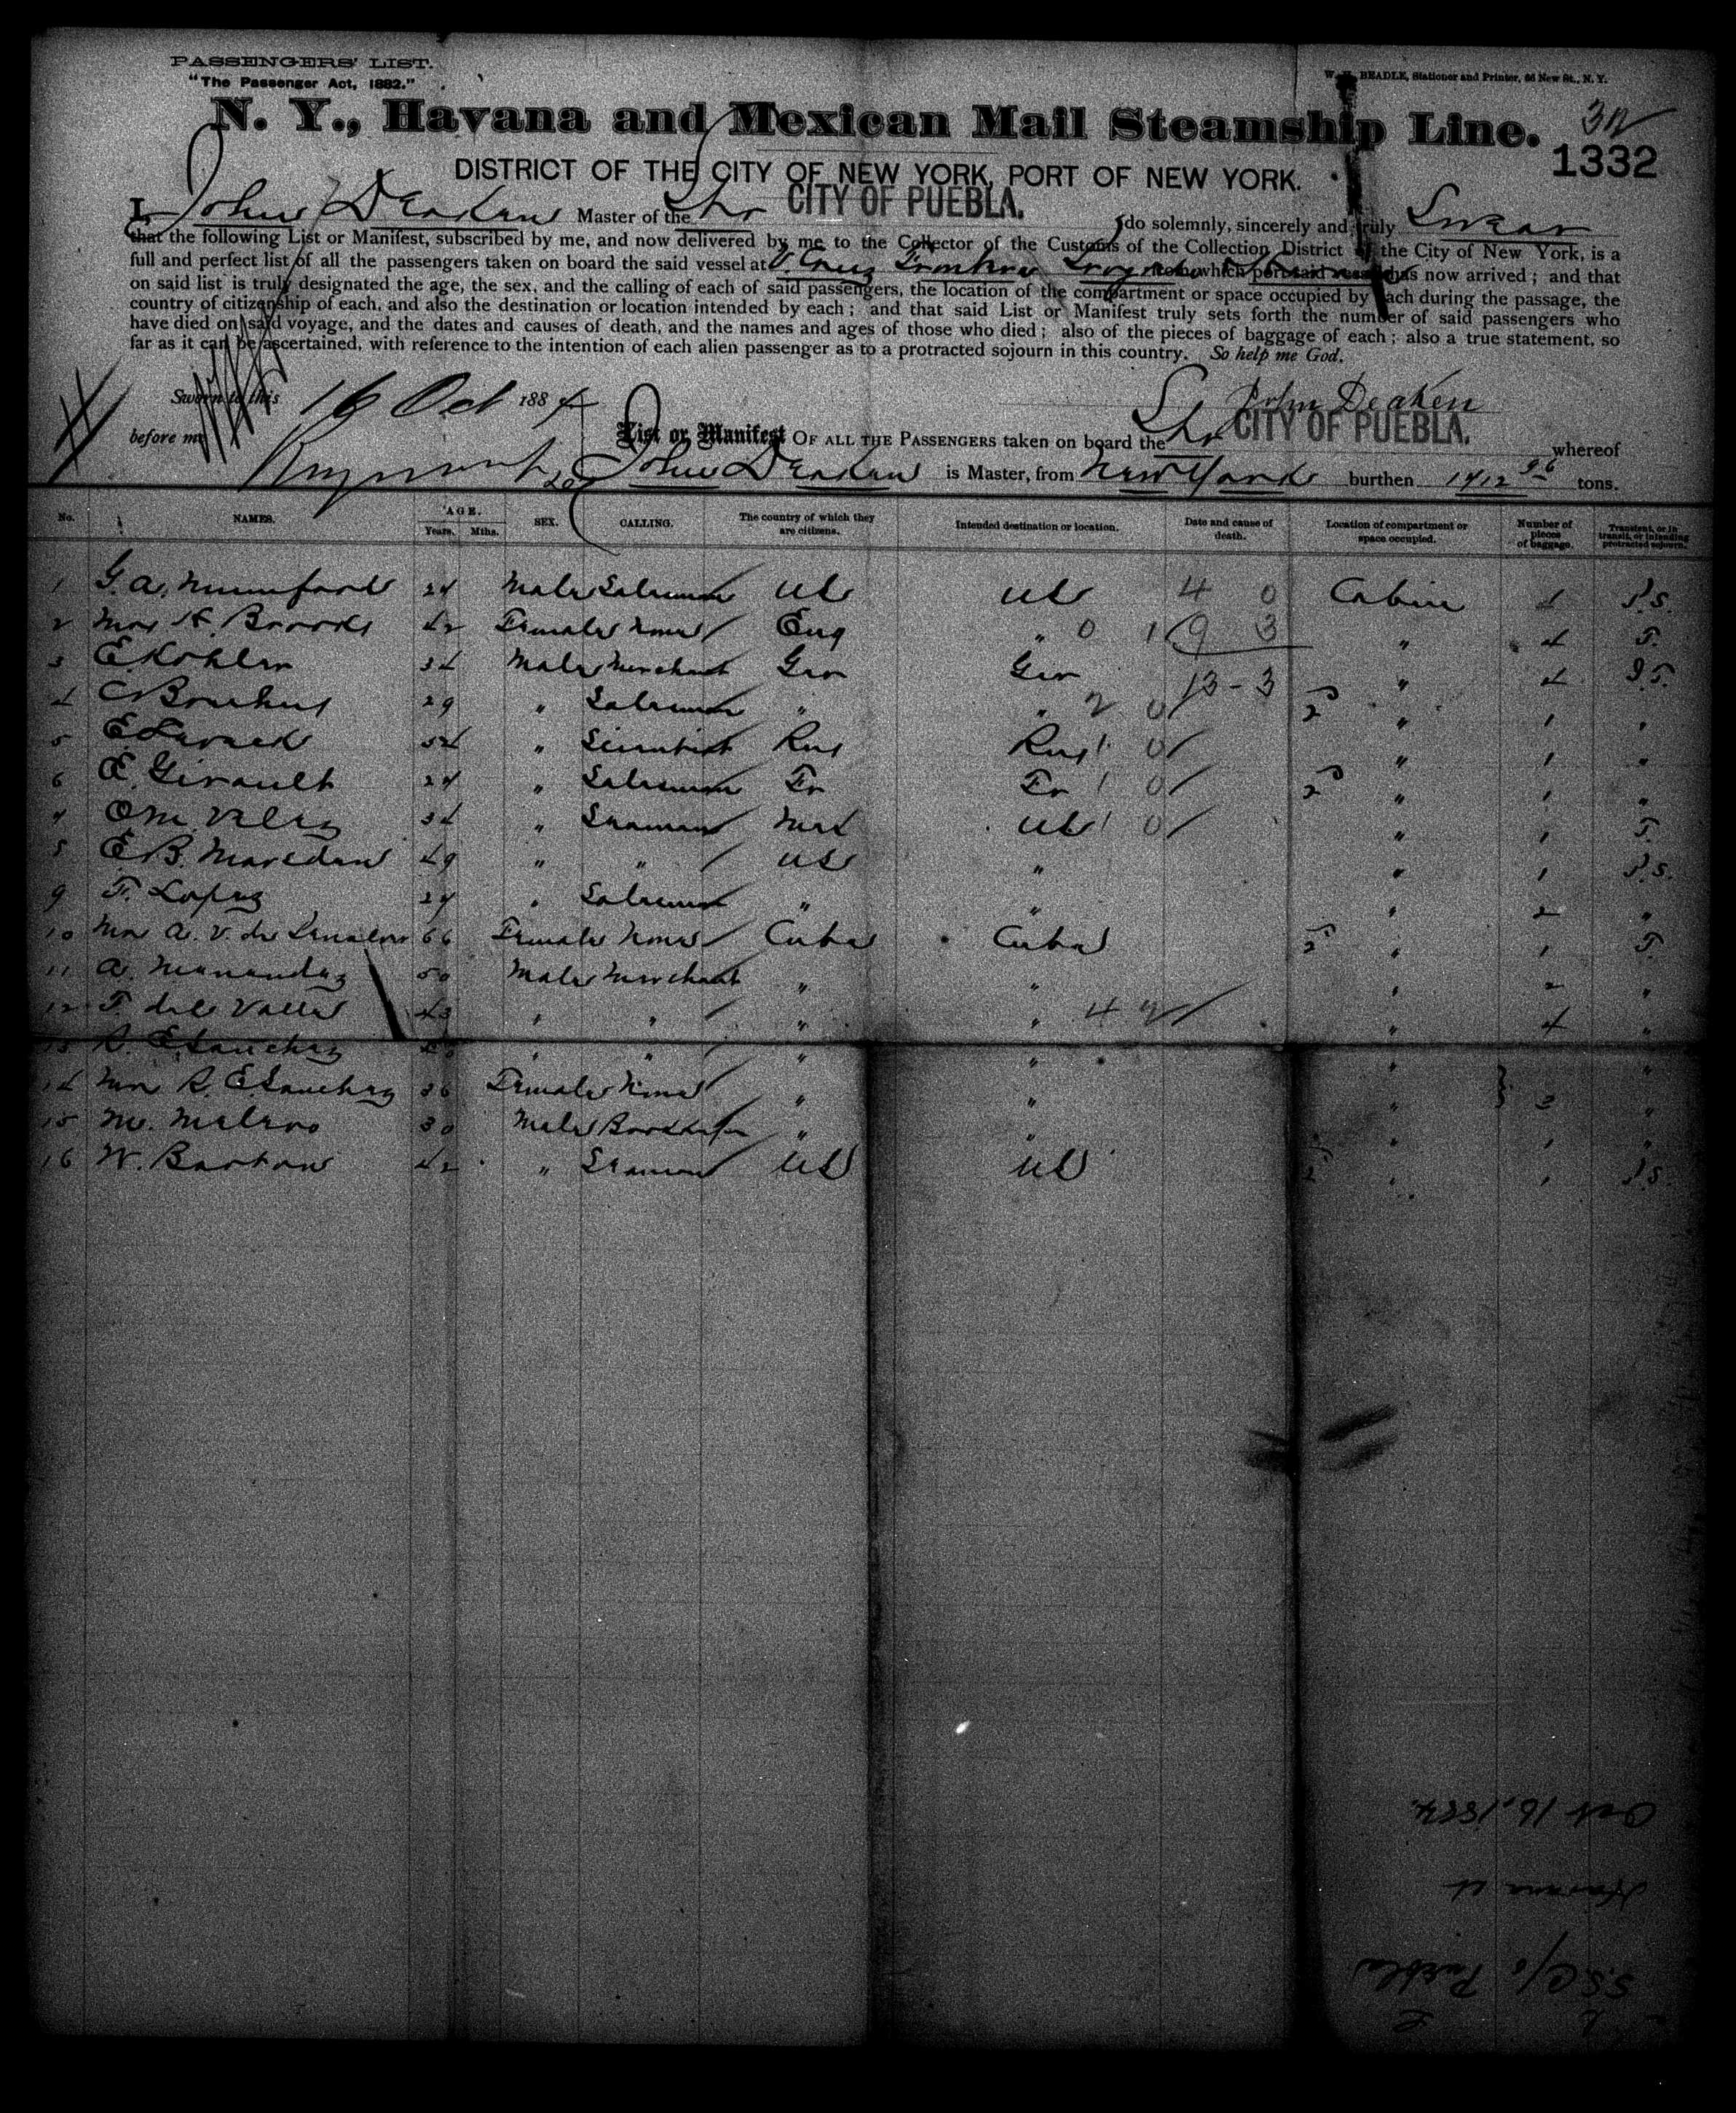 PASSENGERS' LIST.
"The Passenger Act, 1882."
W. H. BEADLE, Stationer and Printer, 66 New St., N. Y.
N. Y., Havana and Mexican Mail Steamship Line.
1332
DISTRICT OF THE CITY OF NEW YORK, PORT OF NEW YORK.
I, John Deaken Master of the Str CITY OF PUEBLA. do solemnly, sincerely and truly Swear
that the following List or Manifest, subscribed by me, and now delivered by me to the Collector of the Customs of the Collection District of the City of New York, is a
full and perfect list of all the passengers taken on board the said vessel at V. Cruz Frontera from which port said vessel has now arrived; and that
on said list is truly designated the age, the sex, and the calling of each of said passengers, the location of the compartment or space occupied by each during the passage, the
country of citizenship of each, and also the destination or location intended by each; and that said List or Manifest truly sets forth the number of said passengers who
have died on said voyage, and the dates and causes of death, and the names and ages of those who died; also of the pieces of baggage of each; also a true statement, so
far as it can be ascertained, with reference to the intention of each alien passenger as to a protracted sojourn in this country. So help me God.
Sworn to this 16 Oct 1884
John Deaken
before me
List or Manifest OF ALL THE PASSENGERS taken on board the Str CITY OF PUEBLA. whereof
John Deaken is Master, from New York burthen 1712 96 tons.
No. NAMES. AGE. Years. Mths. SEX. CALLING. The country of which they are citizens. Intended destination or location. Date and cause of death. Location of compartment or space occupied. Number of pieces of baggage. Transient, or in transit, or intending protracted sojourn.
1 G. A. Mumford 24 Male Salesman US US 4 0 Cabin P.S.
2 Mrs H. Brooks 42 Female None Eng " 0 1 9 3 " 4 T.
3 E Kohler 34 Male Merchant Ger Ger 13-3 " 4
4 29 " Salesman " " 2 0 " 1 "
5 54 " Scientist Rus Rus 1 0 " 1 "
6 E. Girault 24 " Salesman Fr Fr 1 0 " 1 "
7 O M. Velez 34 " Seaman Mex US 1 0 " 1 T.
8 E. B. 49 " " US " " 1 P.S.
9 F. Lopez 24 " Salesman " " " 2 "
10 Mrs A. V. de 66 Female None Cuba Cuba " 1 T.
11 A. 50 Male Merchant " " " 2 "
12 F. del Valle 43 " " " " " 4 "
13 R. E. Sanchez " " " " " "
14 Mrs R. E. Sanchez 36 Female None " " " "
15 M. 30 Male Bookkeeper " " " 1 "
16 W. Barton 42 " Seaman US US " 1 P.S.
Oct 16, 1884.
Havana
S.S. C/o Puebla